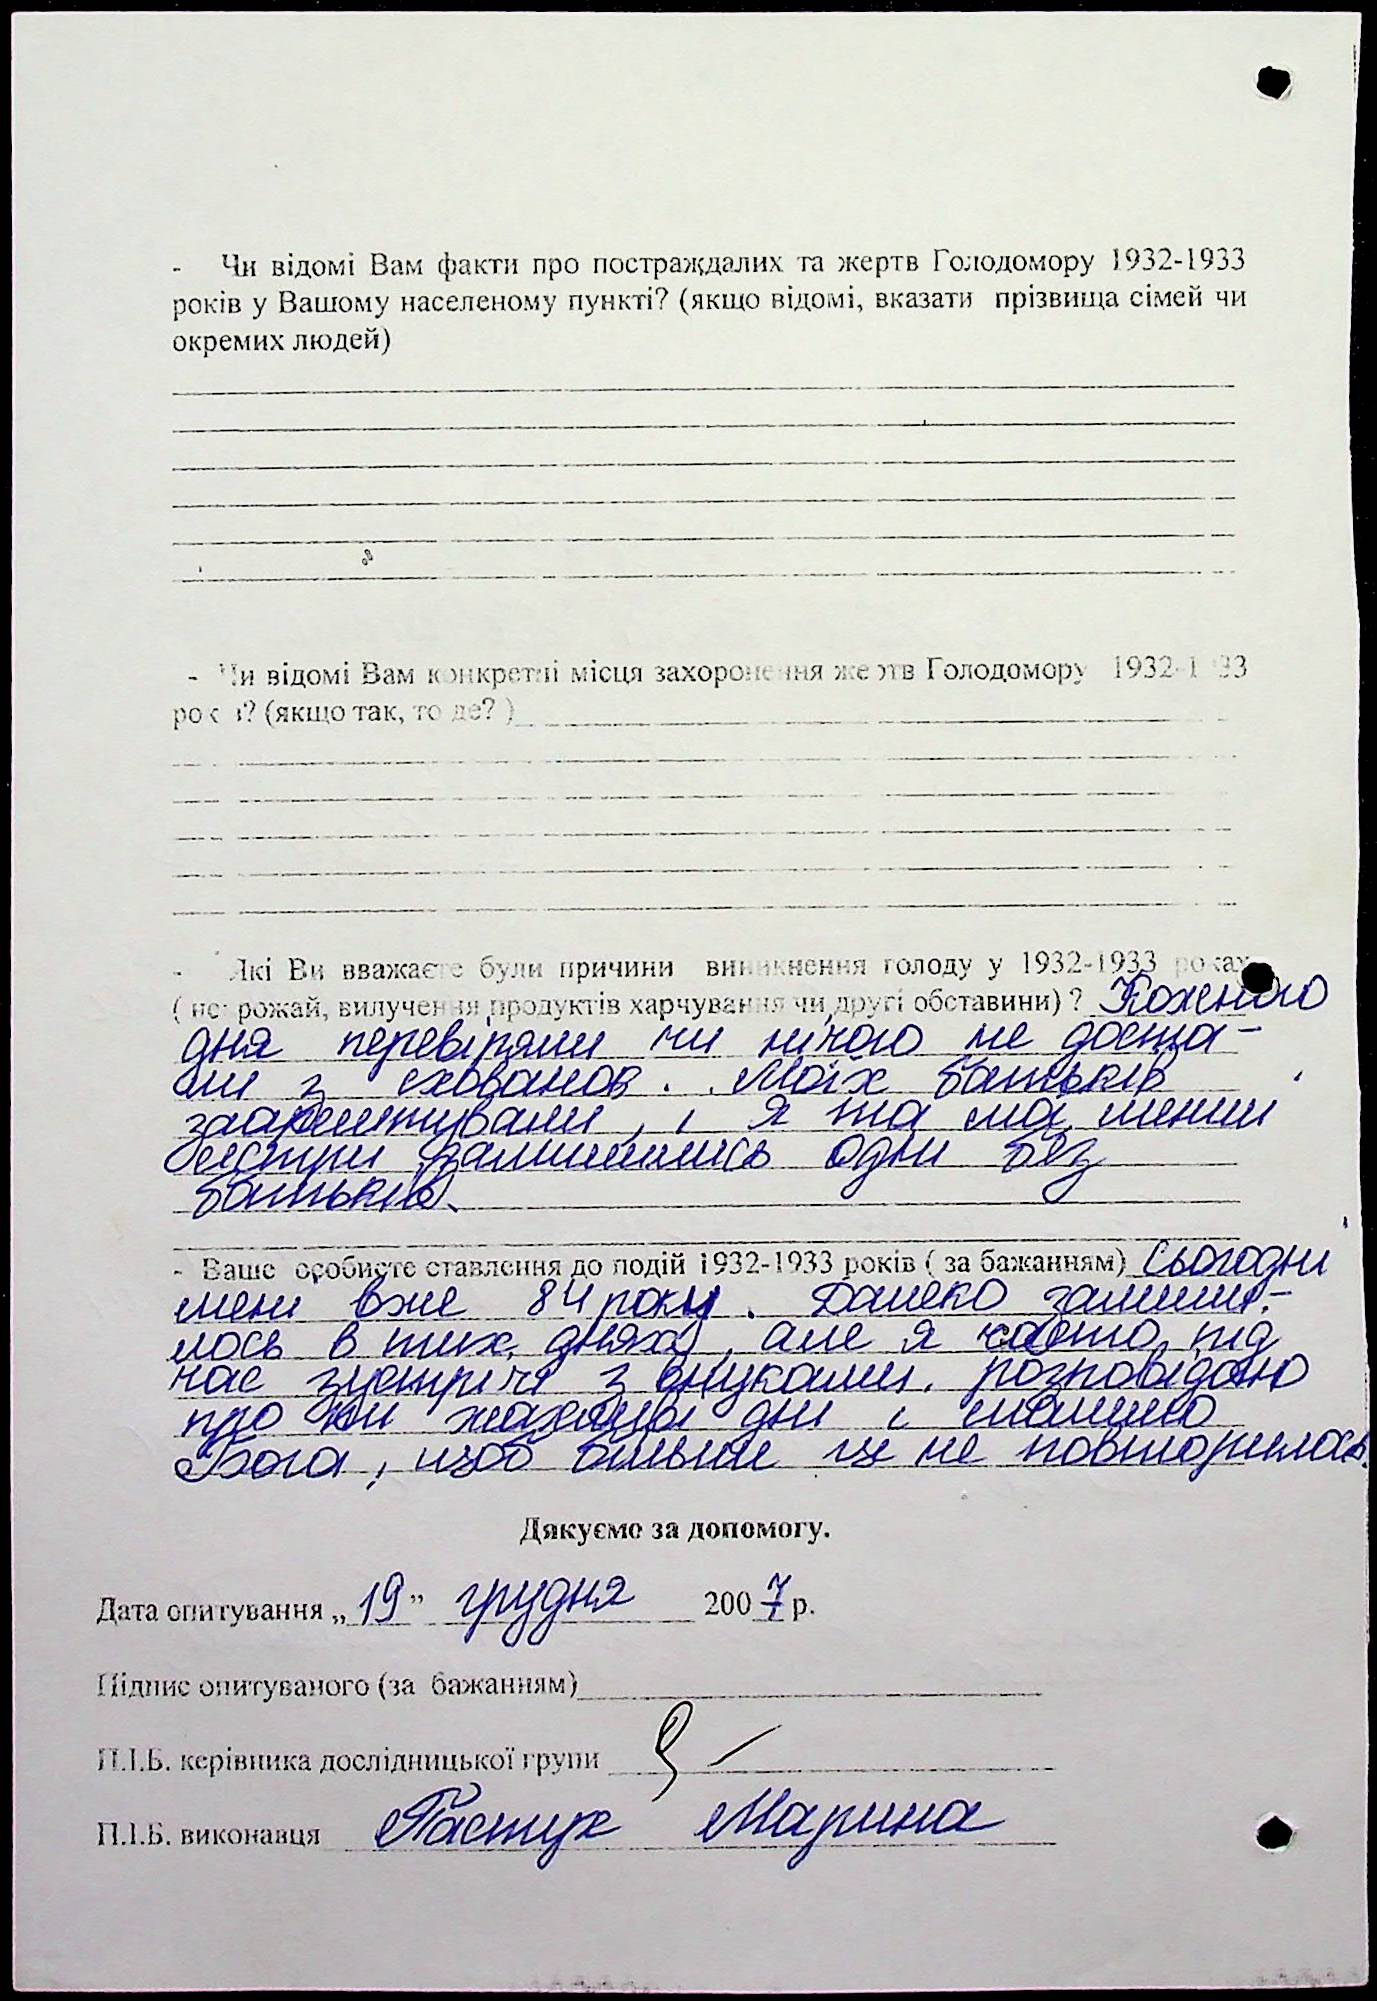 - Чи відомі Вам факти про постраждалих та жертв Голодомору 1932-1933
років у Вашому населеному пункті? (якщо відомі, вказати прізвища сімей чи
окремих людей)
- Чи відомі Вам конкретні місця захоронення жертв Голодомору 1932-1933
років? (якщо так, то де? )
- Які Ви вважаєте були причини виникнення голоду у 1932-1933 роках
( неврожай, вилучення продуктів харчування чи другі обставини) ? Кожного
дня перевіряли чи нічого не доста-
ли з схованок. Моїх батьків
заарештували, і я та мої менші
сестри залишились одні без
батьків.
- Ваше особисте ставлення до подій 1932-1933 років ( за бажанням) Сьогодні
мені вже 84 роки. Далеко залиши-
лось в тих днях, але я часто під
час зустрічі з внуками розповідаю
про ті жахливі дні і молимо
Бога, щоб більше це не повторилось.
Дякуємо за допомогу.
Дата опитування „ 19 ” грудня 2007 р.
Підпис опитуваного (за бажанням)
П.І.Б. керівника дослідницької групи
П.І.Б. виконавця Пастух Марина